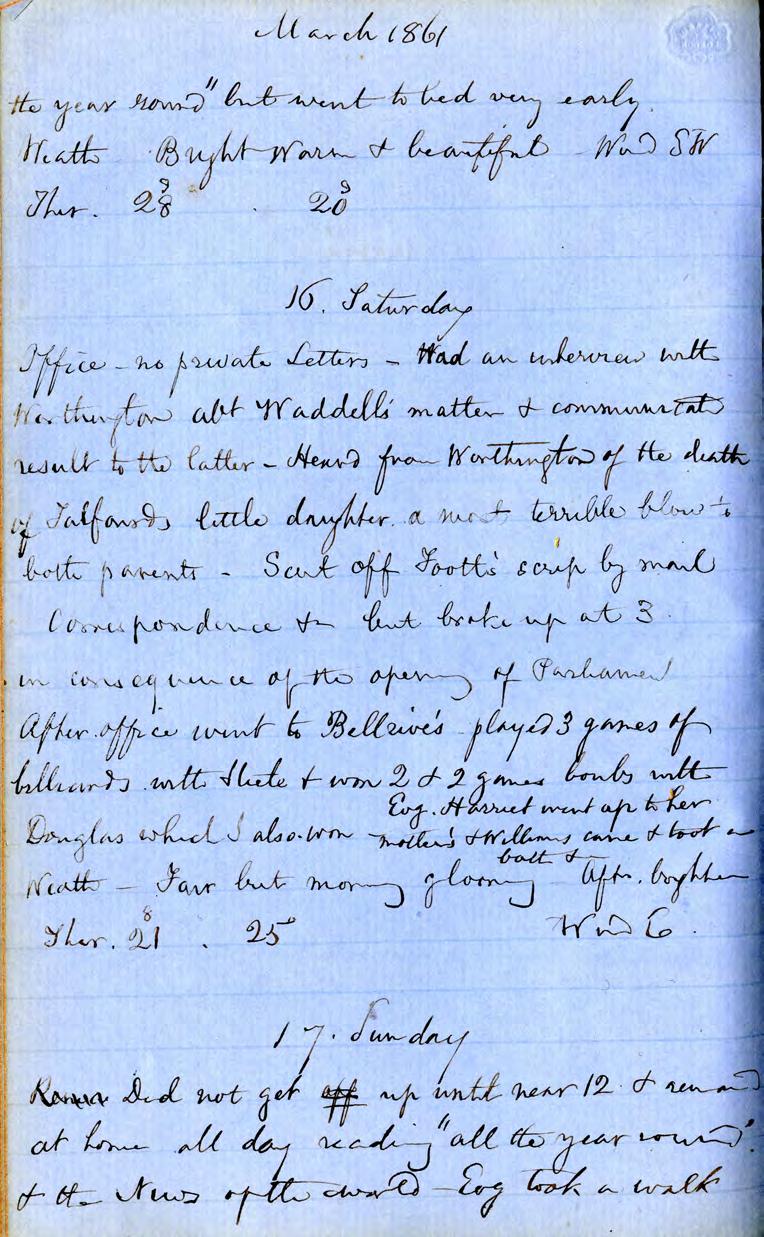 March 1861
the year round" but went to bed very early.
Weath Bright Warm & beautiful Wind SW
Ther. 28 . 20
16. Saturday
Office - no private Letters - Had an interview with
Worthington abt Waddell's matter & communicated
result to the latter - Heard from Worthington of the death
of Talfourds little daughter. a most terrible blow to
both parents - Sent off Foott's scrip by mail
Correspondence &c but broke up at 3
in consequence of the opening of Parliament
After office went to Bellrive's played 3 games of
billiards with & won 2 & 2 games bowls with
Douglas which I also won Evg. Harriet went up to her
mother's & Williams came & took a
bath &
Weath - Fair but morning gloomy Aftn. brighter
Ther. 21 . 25 Wind E.
17. Sunday
Did not get off up until near 12 & remained
at home all day reading "all the year round"
& the News of the world - Evg took a walk